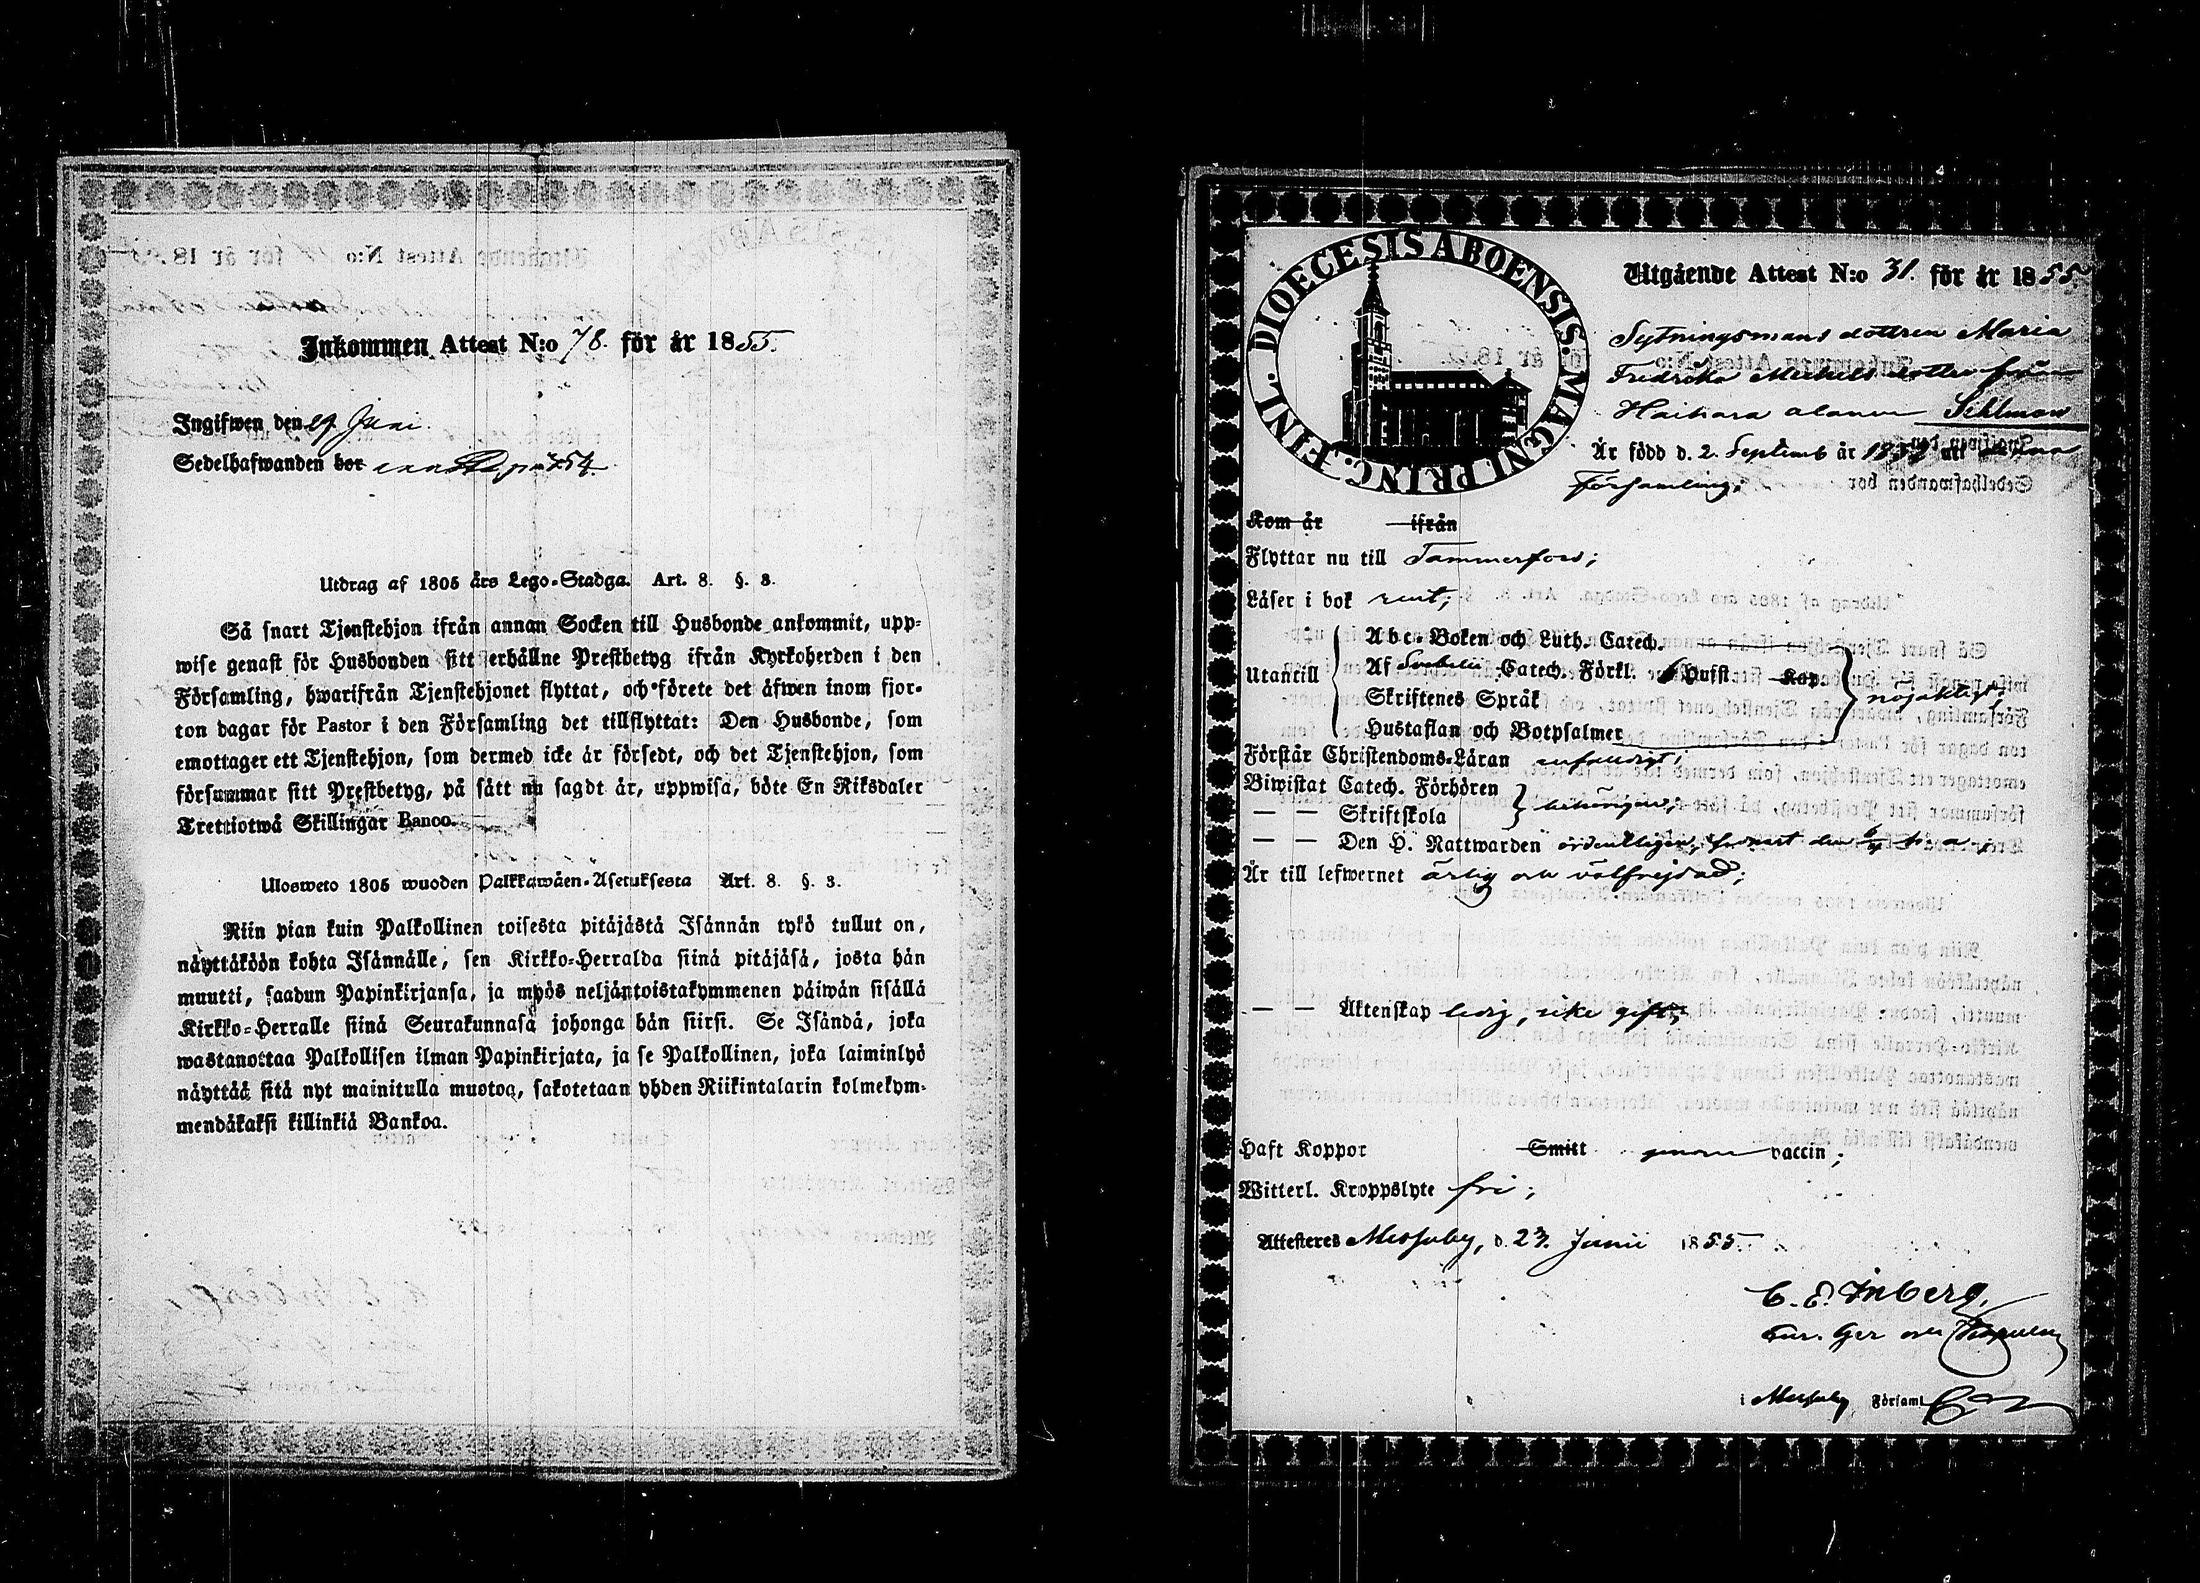 Inkommen Attest N:o 78. för år 1855.
Ingifwen den 29 Juni
Sedelhafwanden bor
Utdrag af 1805 års Lego-Stadga. Art. 8. §. 3.
Så snart Tjenstehjon ifrån annan Socken till Husbonde ankommit, upp-
wise genast för Husbonden sitt erhållne Prestbetyg ifrån Kyrkoherden i den
Församling, hwarifrån Tjenstehjonet flyttat, och förete det äfwen inom fjor-
ton dagar för Pastor i den Församling det tillflyttat: Den Husbonde, som
emottager ett Tjenstehjon, som dermed icke är försedt, och det Tjenstehjon, som
försummar sitt Prestbetyg, på sätt nu sagdt är, uppwisa, böte En Riksdaler
Trettiotwå Skillingar Banco.
Ulosweto 1805 wuoden Palkkawäen-Asetuksesta Art. 8. §. 3.
Niin pian kuin Palkollinen toisesta pitäjästä Isännän tykö tullut on,
näyttäköön kohta Isännälle, sen Kirkko-Herralda siinä pitäjäsä, josta hän
muutti, saadun Papinkirjansa, ja myös neljäntoistakymmenen päiwän sisällä
Kirkko-Herralle siinä Seurakunnasa johonga hän siirsi. Se Isändä, joka
wastanottaa Palkollisen ilman Papinkirjata, ja se Palkollinen, joka laiminlyö
näyttää sitä nyt mainitulla muotoa, sakotetaan yhden Riikintalarin kolmekym-
mendäkaksi killinkiä Bankoa.
DIOECESIS ABOENSIS. MAGNI PRINC. FINL.
Utgående Attest N:o 31. för år 1855.
Sytningsmans dottren Maria
Fredrika Michels dotter från
Haihara
Är född d. 2. Septemb år uti denna
Församling;
Kom år ifrån
Flyttar nu till Tammerfors;
Läser i bok rent;
Utantill
Abc-Boken och Luth. Catech.
Af Svebelii Catech. Förkl. 6 Hufst Kap
Skriftenes Språk
Hustaflan och Botpsalmer
nöjaktigt;
Förstår Christendoms-Läran enfaldigt;
Biwistat Catech. Förhören
— — Skriftskola
behörigen;
— — Den H. Nattwarden ordentligen, senast den
Är till lefwernet ärlig och välfrejdad;
— — Äktenskap ledig, icke gift;
Haft Koppor Smitt genom vaccin;
Witterl. Kroppslyte fri;
Attesteres Messuby, d. 23. Junii 1855.
C. E. Inberg,
i Messuby Församl.